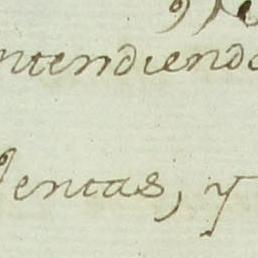 ntendiendo
entas, y